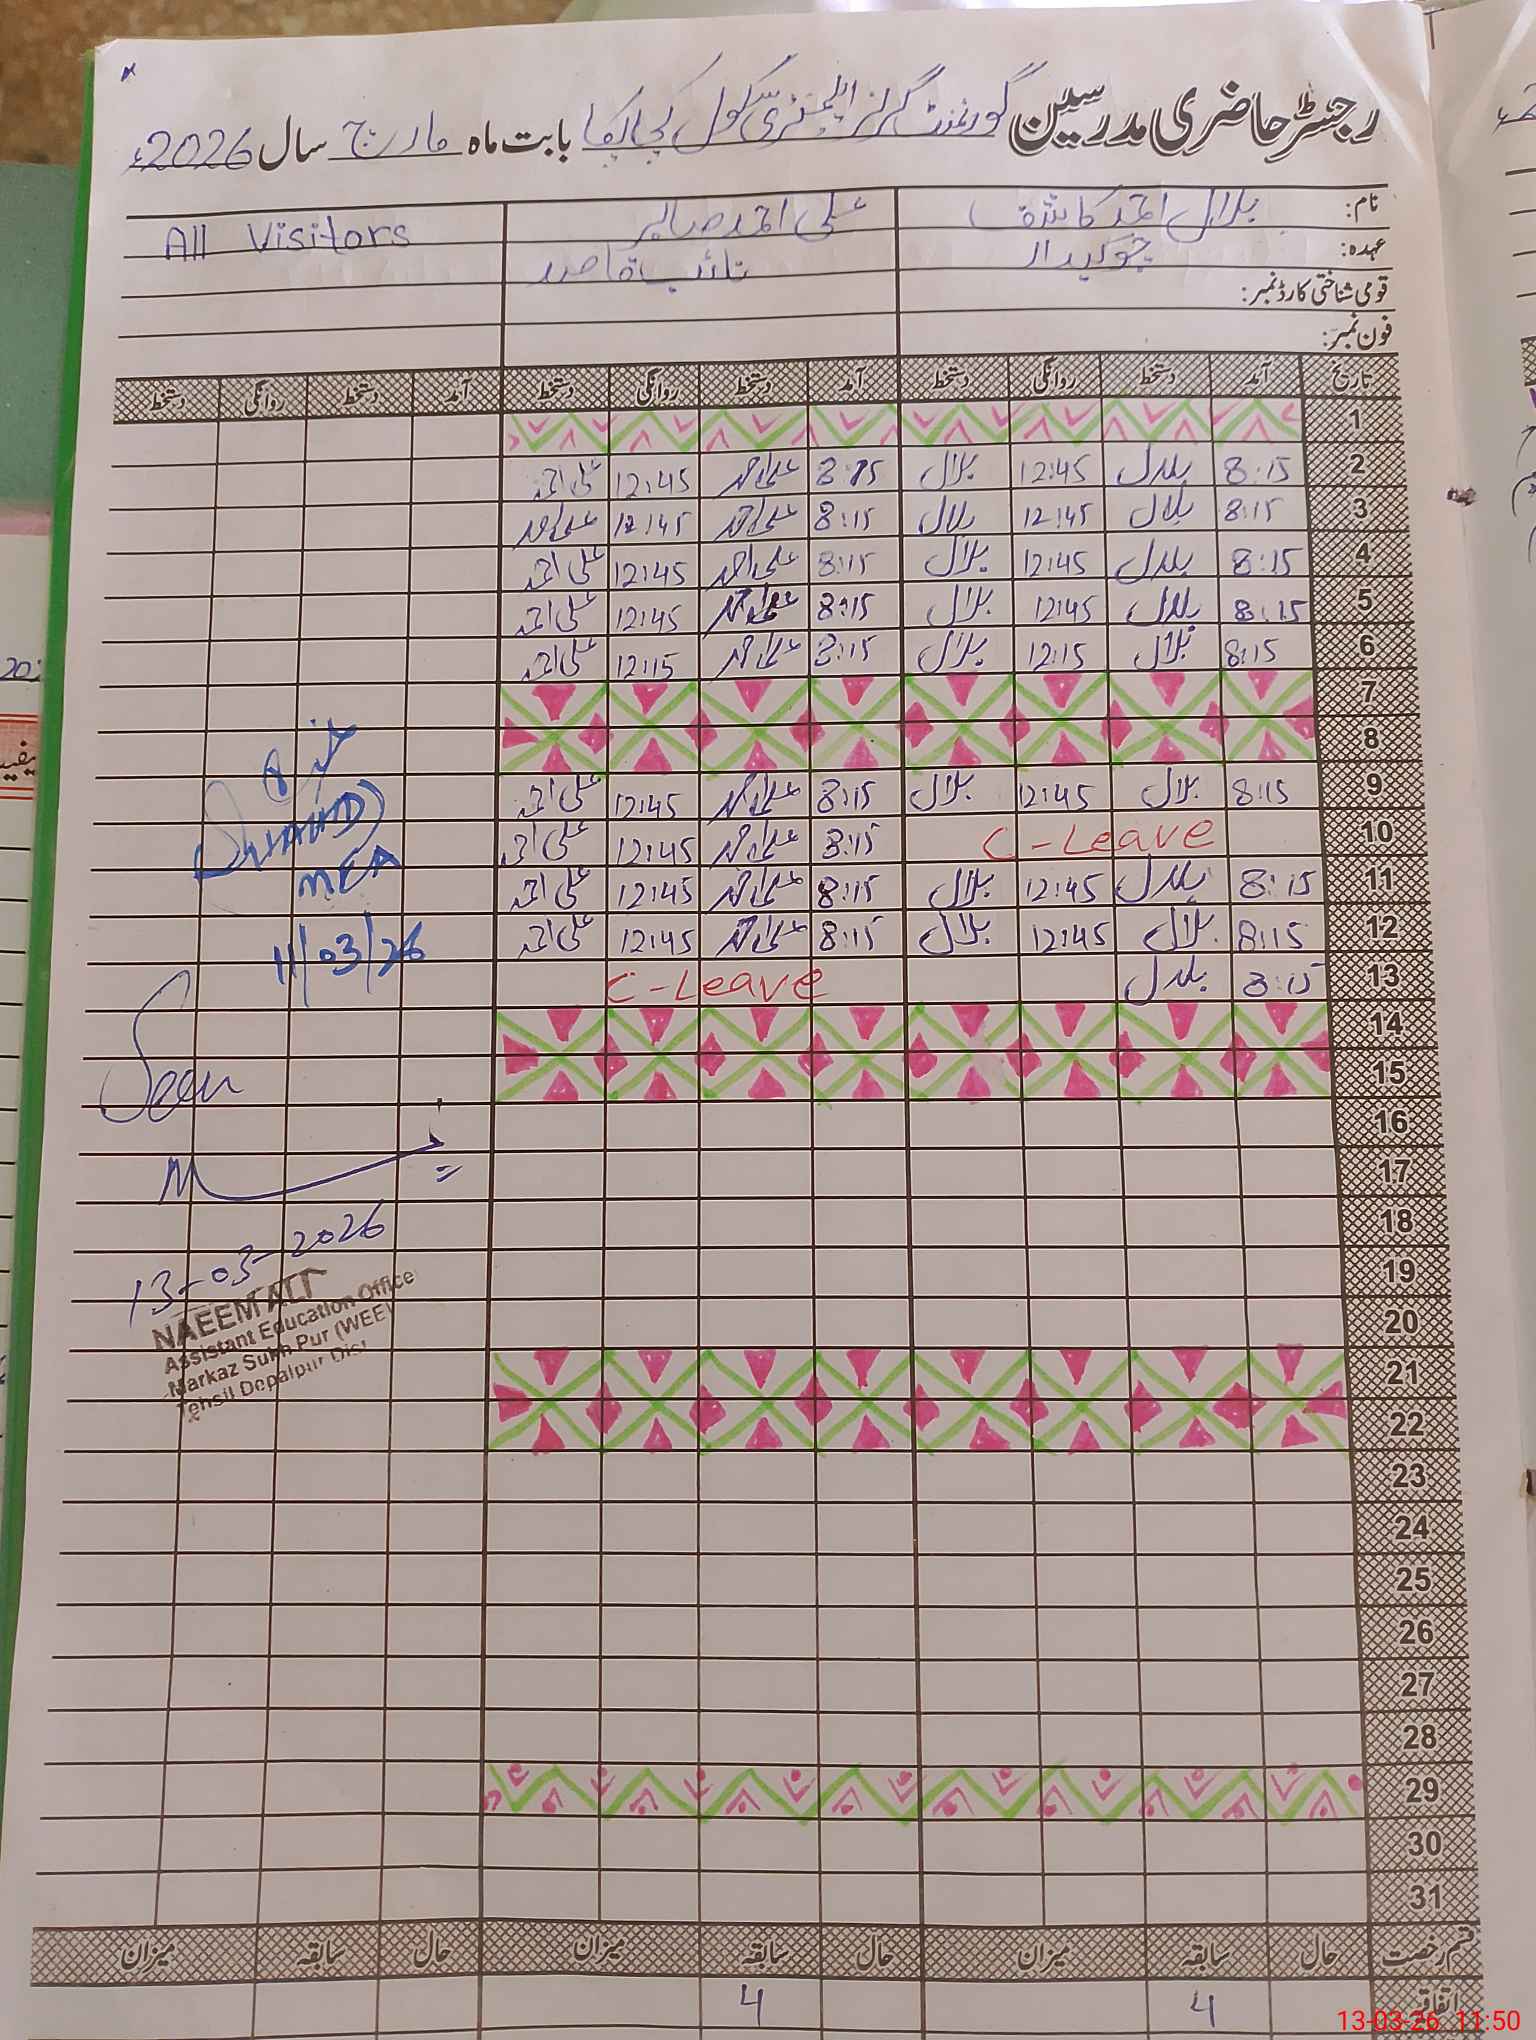 رجسٹر حاضری مدرسین گورنمنٹ گرلز ایلیمنٹری سکول بابت ماہ مارچ سال 2026ء
نام: بلال احمد کاشف علی احمد صابر All Visitors
عہدہ: چوکیدار نائب قاصد
قومی شناختی کارڈ نمبر:
فون نمبر:
تاریخ آمد دستخط روانگی دستخط آمد دستخط روانگی دستخط آمد دستخط روانگی دستخط
1
2 8:15 بلال 12:45 بلال 8:15 علی احمد 12:45 علی احمد
3 8:15 بلال 12:45 بلال 8:15 علی احمد 12:45 علی احمد
4 8:15 بلال 12:45 بلال 8:15 علی احمد 12:45 علی احمد
5 8:15 بلال 12:45 بلال 8:15 علی احمد 12:45 علی احمد
6 8:15 بلال 12:15 بلال 8:15 علی احمد 12:15 علی احمد
7
8
9 8:15 بلال 12:45 بلال 8:15 علی احمد 12:45 علی احمد
10 C-Leave 8:15 علی احمد 12:45 علی احمد
11 8:15 بلال 12:45 بلال 8:15 علی احمد 12:45 علی احمد
MEA
12 8:15 بلال 12:45 بلال 8:15 علی احمد 12:45 علی احمد
11/03/26
13 8:15 بلال C-Leave
14
15
Seen
16
17
18
13-03-2026
19
20
NAEEM ALI
Assistant Education Office
Markaz Sukh Pur (WEE)
Tehsil Depalpur Dist
21
22
23
24
25
26
27
28
29
30
31
قسم رخصت حال سابقہ میزان حال سابقہ میزان حال سابقہ میزان
اتفاقیہ 4 4
13-03-26 11:50